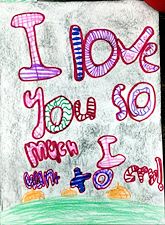 I love
You SO
much I
want to cry!